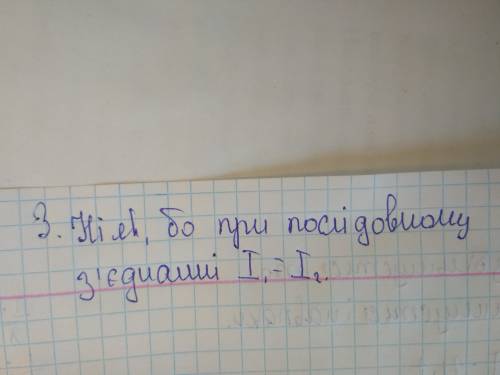 3. Ні, бо при послідовному
з'єднанні I₁ = I₂.